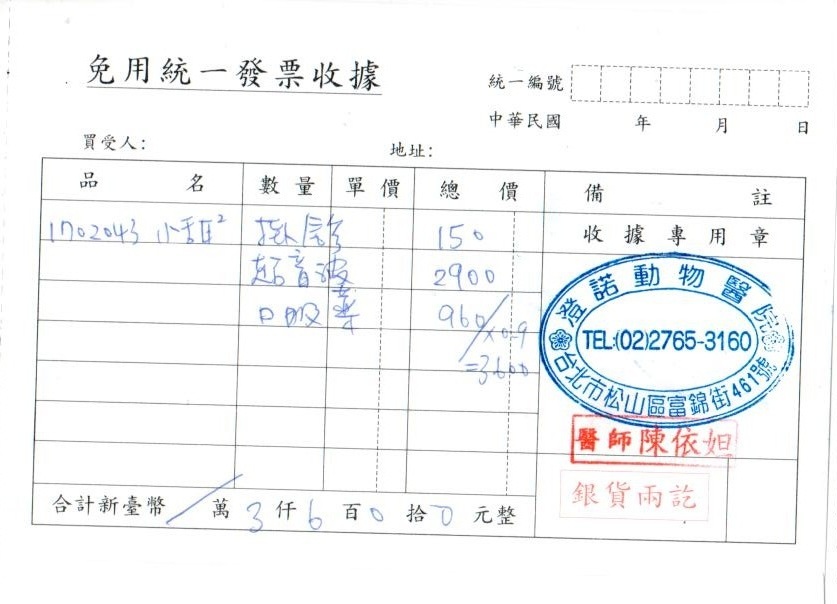 免用統一發票收據
統一編號
中華民國 年 月 日
買受人: 地址:
品名 數量 單價 總價 備註
1702043 小甜² 掛號 150 收據專用章
超音波 2900
口服藥 960
×0.9
=3600
澄諾動物醫院
TEL:(02)2765-3160
台北市松山區富錦街461號
醫師陳依妲
銀貨兩訖
合計新臺幣 / 萬 3 仟 6 百 0 拾 0 元整